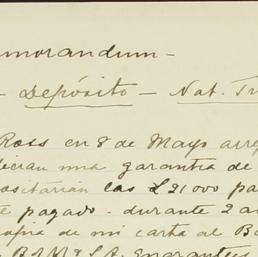 morandum -
- Depósito - Nat. Tr
Ross en 8 de Mayo arre
decian una garantia de
ositarian las £21000 pa
te pagado - durante 2 a
opia de mi carta al B